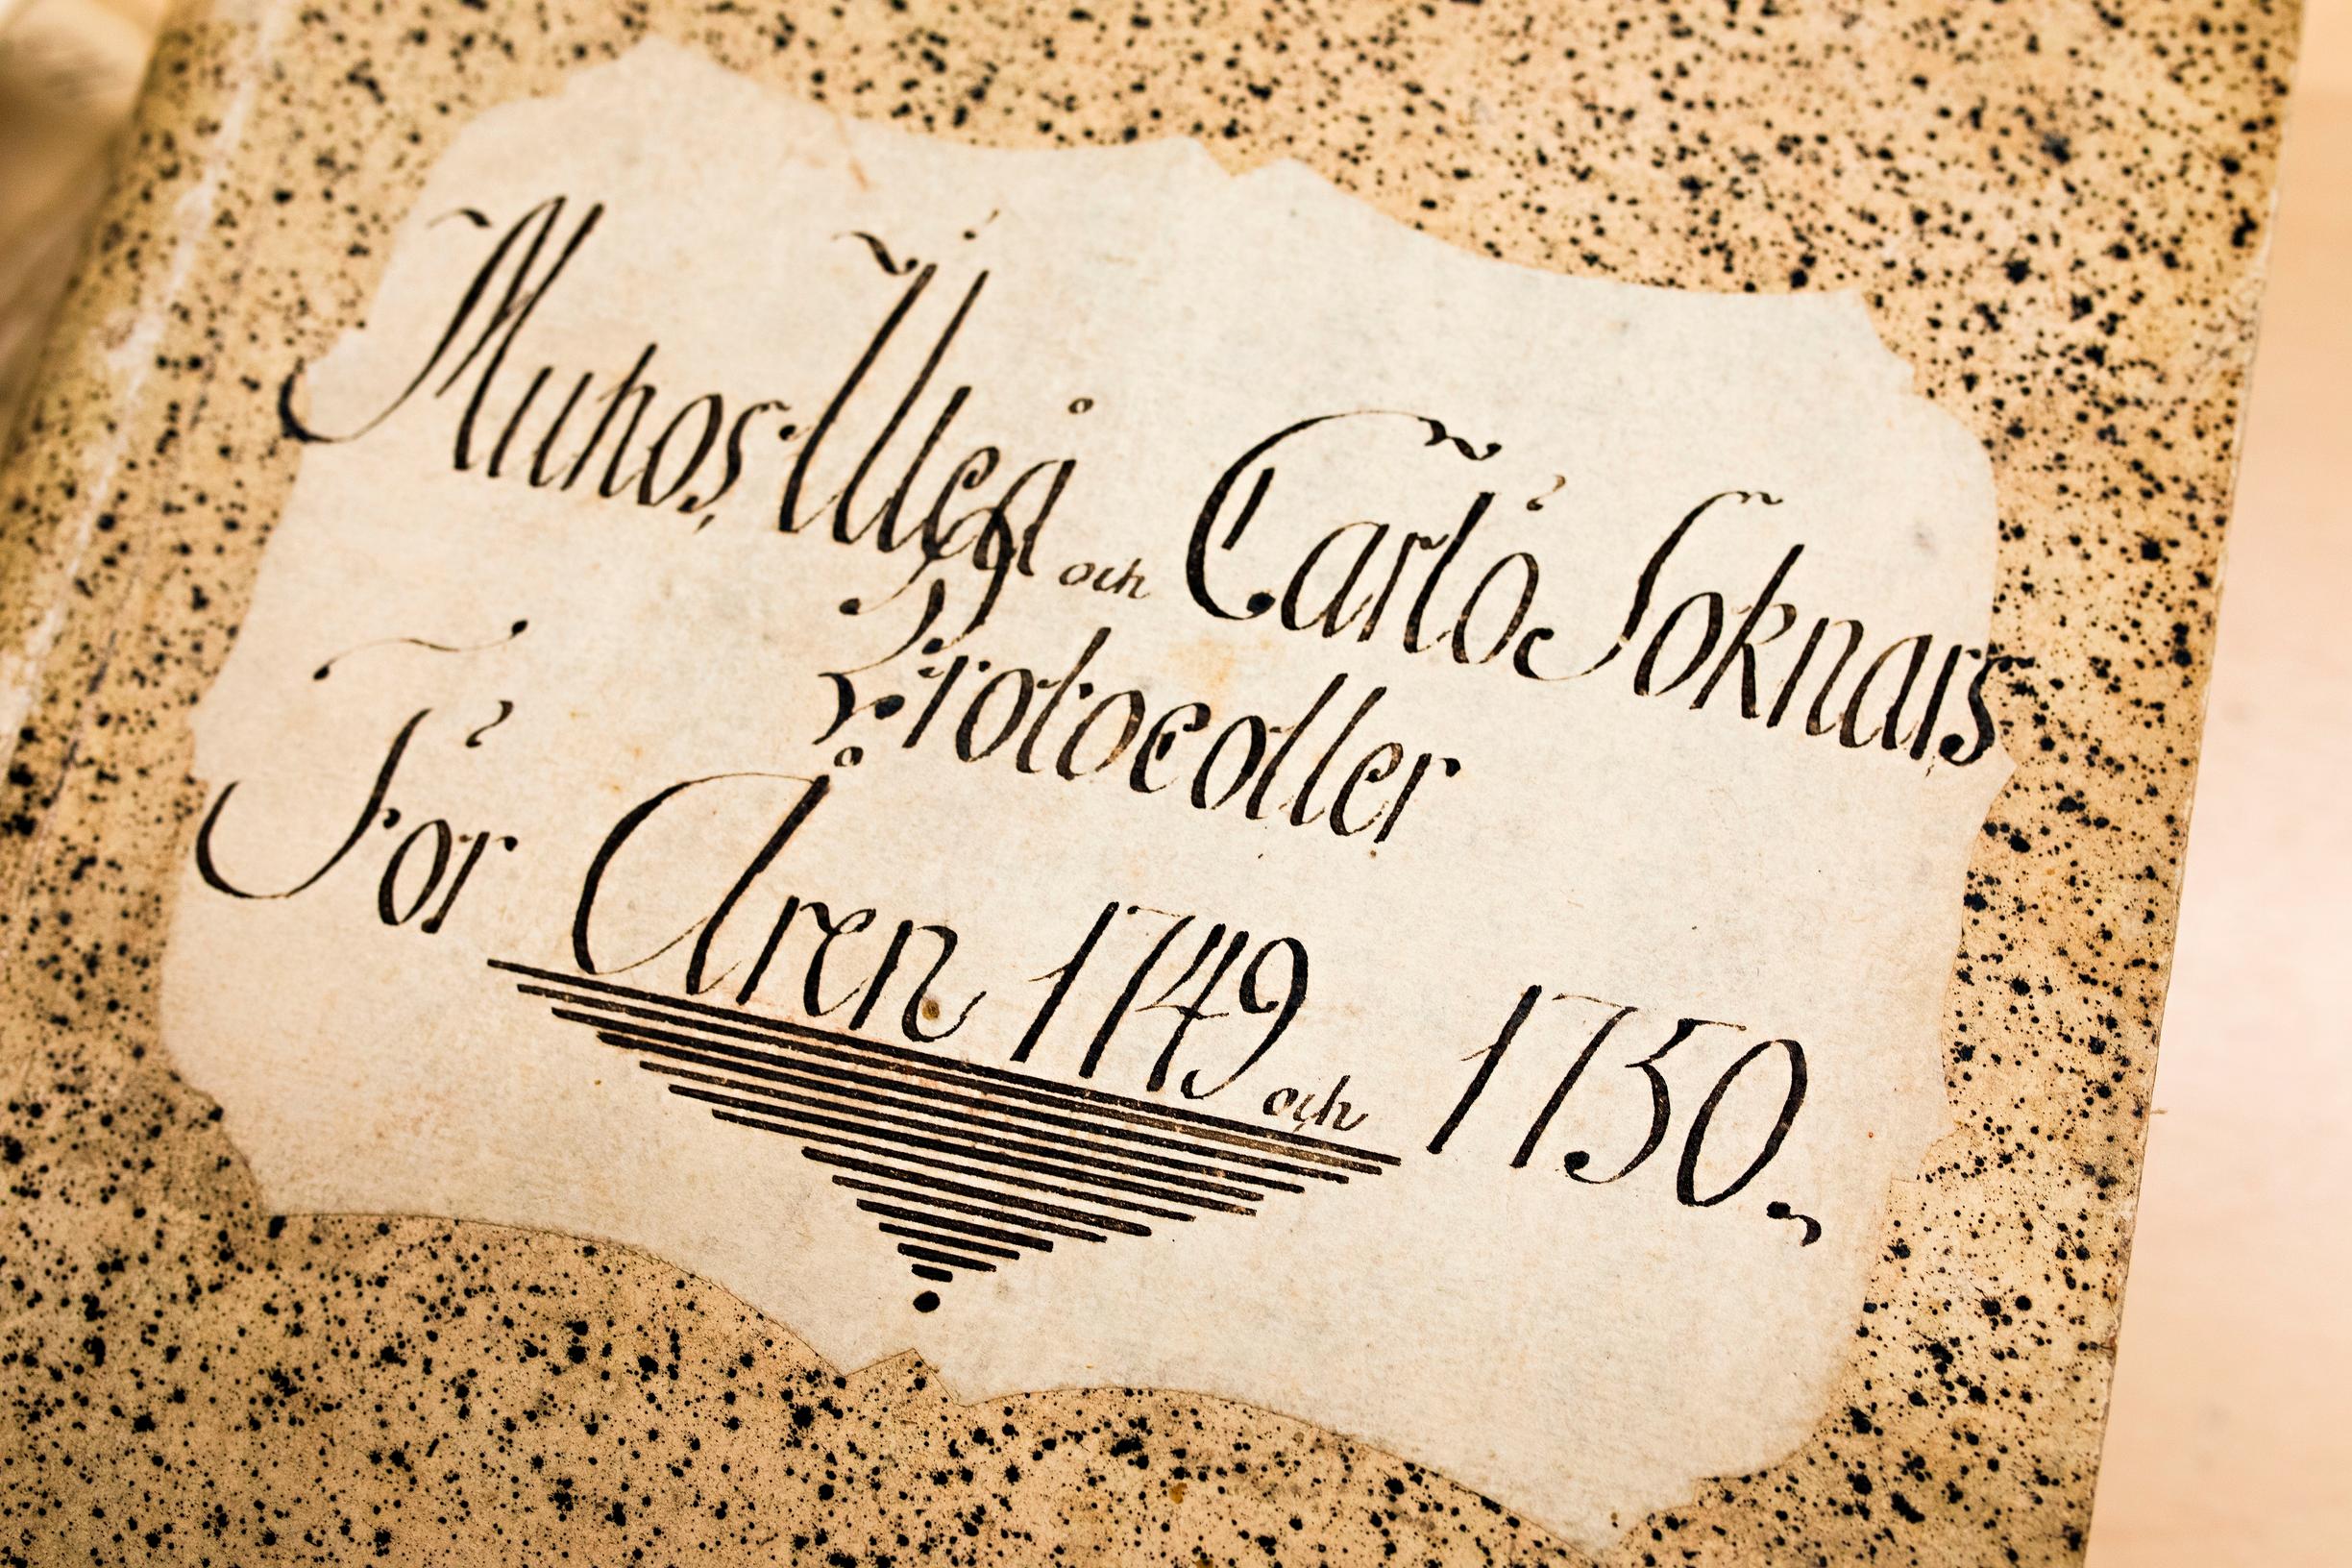 Muhos, Uleå och Carlö Soknars
Protocoller
För Åren 1749 och 1750.